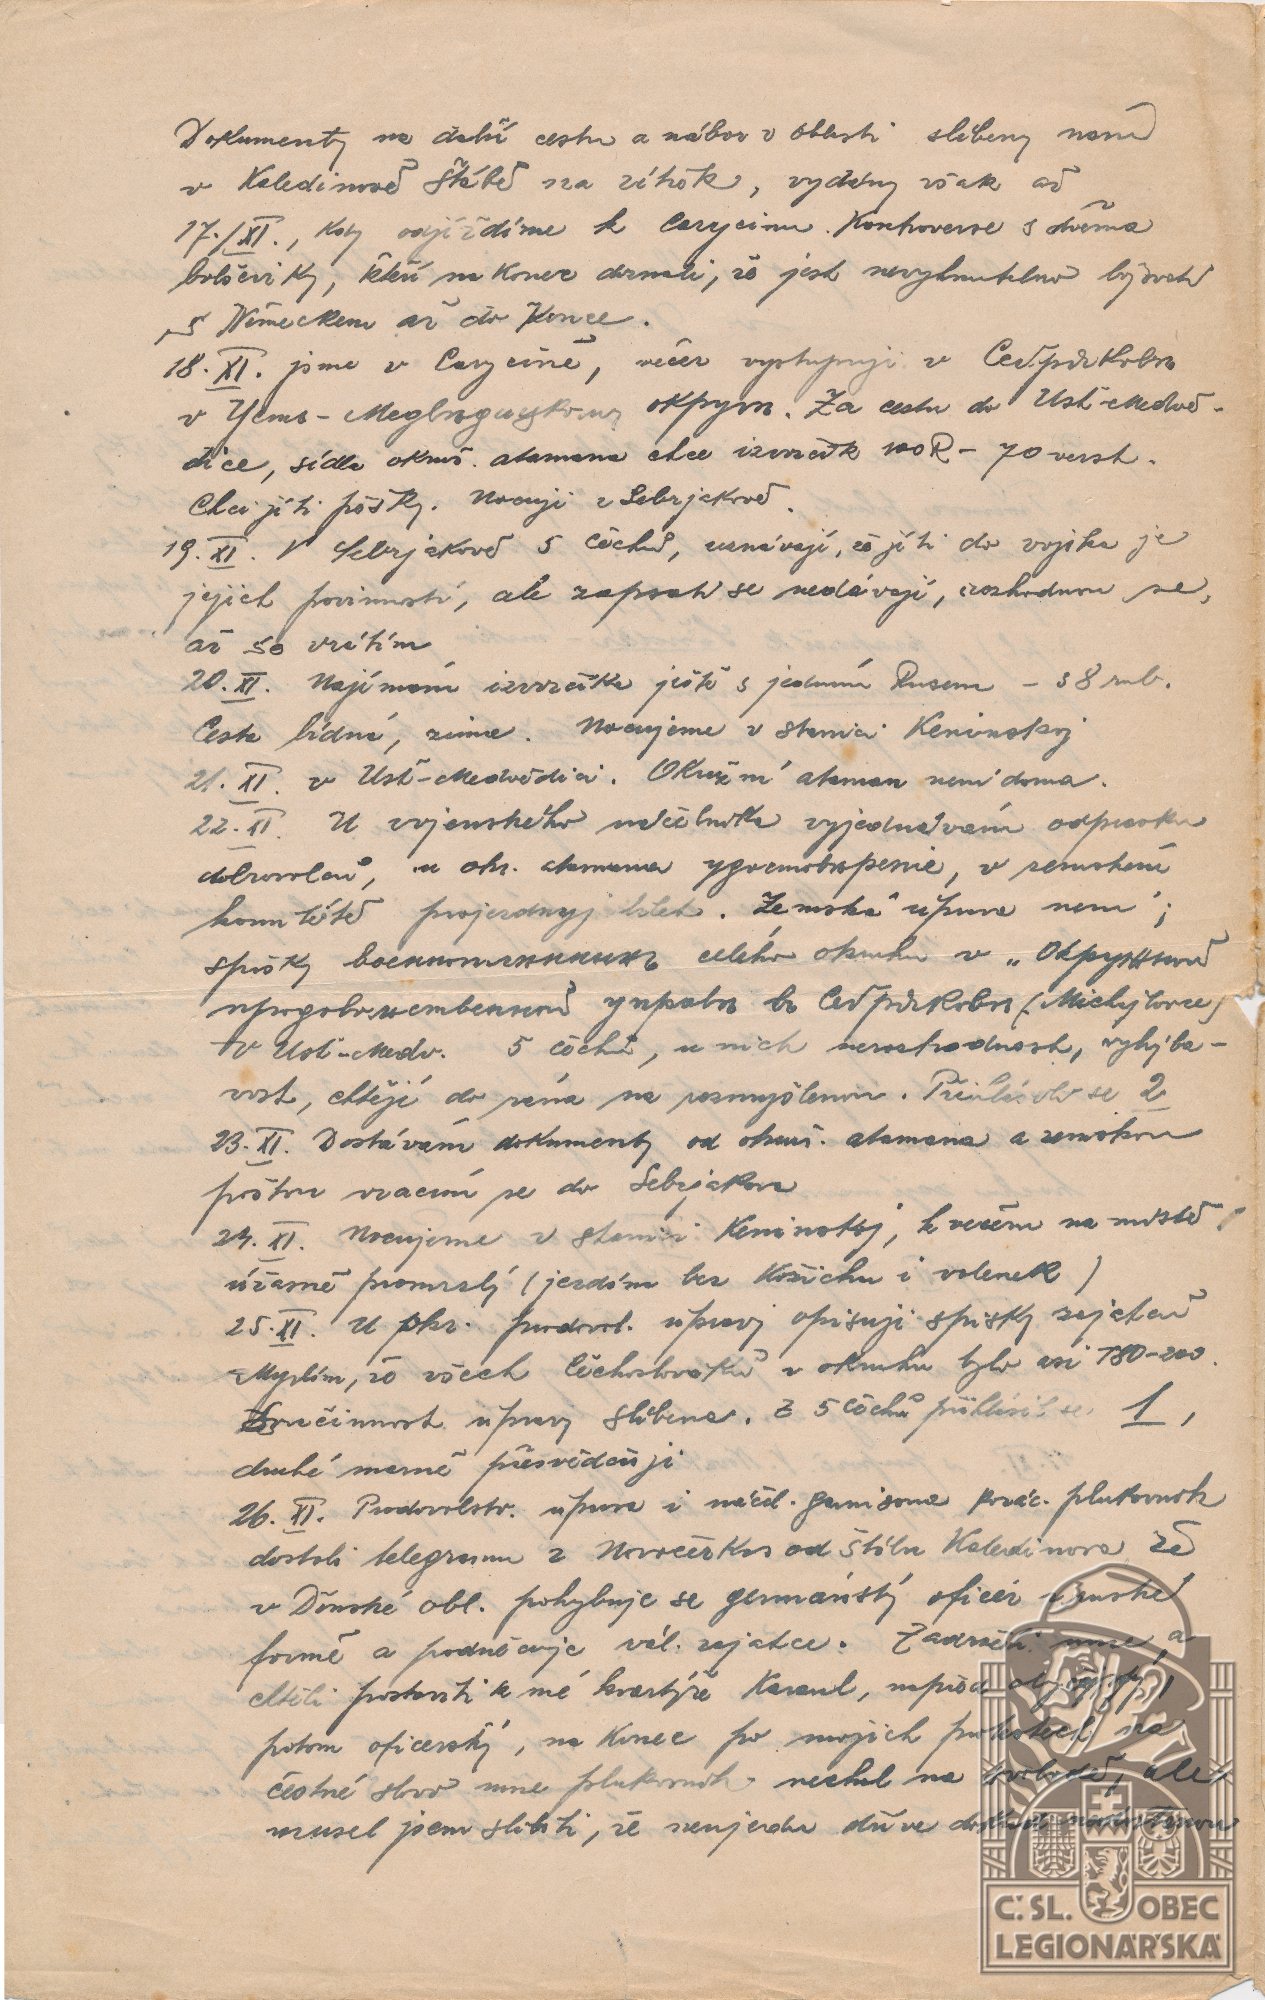 Dokumenty na další cestu a nábor v oblasti slíbeny
v Kaledinově štábě na zítřek, vydány však až
17./XI., kdy odjíždíme k Carycinu. Kontroverse s dvěma
bolševiky, kteří na konec doznali, že jest nevyhnutelno bojovati
s Německem až do konce.
18. XI. jsme v Carycině, večer vystupuji v
v окруѓъ. Za cestu do Usť-Medvě-
dice, sídla okruž. atamana chce izvozčík 100 R – 70 verst.
Chci jíti pěšky. Nocuji v Sebrjakově.
19. XI. V Sebrjakově 5 Čechů, uznávají, že jíti do vojska je
jejich povinností, ale zapsati se nedávají, rozhodnou se,
až se vrátím
20. XI. Najímám izvozčíka ještě s jedním Rusem – 38 rub.
Cesta bídná, zima. Nocujeme v stanici
21. XI. v Usť-Medvědici. Okružní ataman není doma.
22. XI. U vojenského načelníka vyjednávám odpravku
dobrovolců, u okr. atamana удостовѣреніе, v zemském
komitétě projezdnyj bilet. Zemská uprava není;
spisky военноплѣнныхъ celého okruhu v „Окружной
продовольственной управѣ (Michajlovce)
V Usť-Medv. 5 Čechů, u nich nerozhodnost, vyhýba-
vost, chtějí do rána na rozmyšlenou. Přihlásili se 2
23. XI. Dostávám dokumenty od okruž. atamana a zemskou
poštou vracím se do Sebrjakova
24. XI. Nocujeme v stanici k večeru na místě
úžasně promrzlý (jezdím bez kožichu i valenek)
25. XI. U okr. prodovol. upravy opisuji spisky zajatců
Myslím, že všech Čechoslováků v okruhu bylo asi 180–200.
Součinnost upravy slíbena. Z 5 Čechů přihlásil se 1,
druhé marně přesvědčuji
26. XI. Prodovolstv. uprava i náčel. garnisona kozác. plukovník
dostali telegram z Novočerkas od štábu Kaledinova že
v Donské obl. pohybuje se germánský oficer v ruské
formě a podněcuje vál. zajatce. Zadrželi mne a
chtěli postaviti k mé kvartýře karaul, napřed
potom oficerský, na konec po mojich protestech na
čestné slovo mne plukovník nechal na svobodě, ale
musel jsem slíbiti, že neujedu dříve
C.SL. OBEC
LEGIONÁŘSKÁ